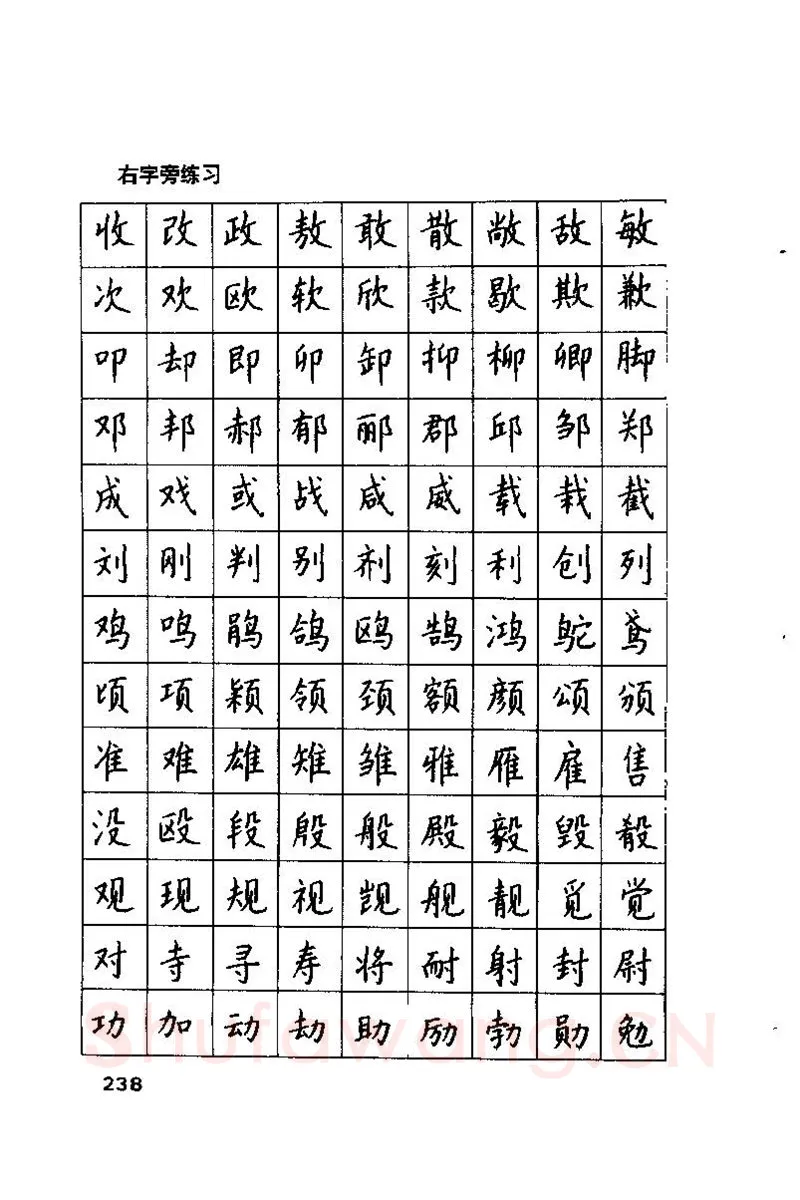 右字旁练习
收 改 政 敖 敢 散 敞 敌 敏
次 欢 欧 软 欣 款 歇 欺 歉
叩 却 即 卯 卸 抑 柳 卿 脚
邓 邦 郝 郁 郦 郡 邱 邹 郑
成 戏 或 战 咸 威 载 栽 截
刘 刚 判 别 剂 刻 利 创 列
鸡 鸣 鹃 鸽 鸥 鹄 鸿 鸵 鸢
顷 项 颖 领 颈 额 颜 颂 颁
准 难 雄 雉 雏 雅 雁 雇 售
没 殴 段 殷 般 殿 毅 毁 殽
观 现 规 视 觊 舰 靓 觅 觉
对 寺 寻 寿 将 耐 射 封 尉
功 加 动 劫 助 励 勃 勋 勉
Shufawang.CN
238